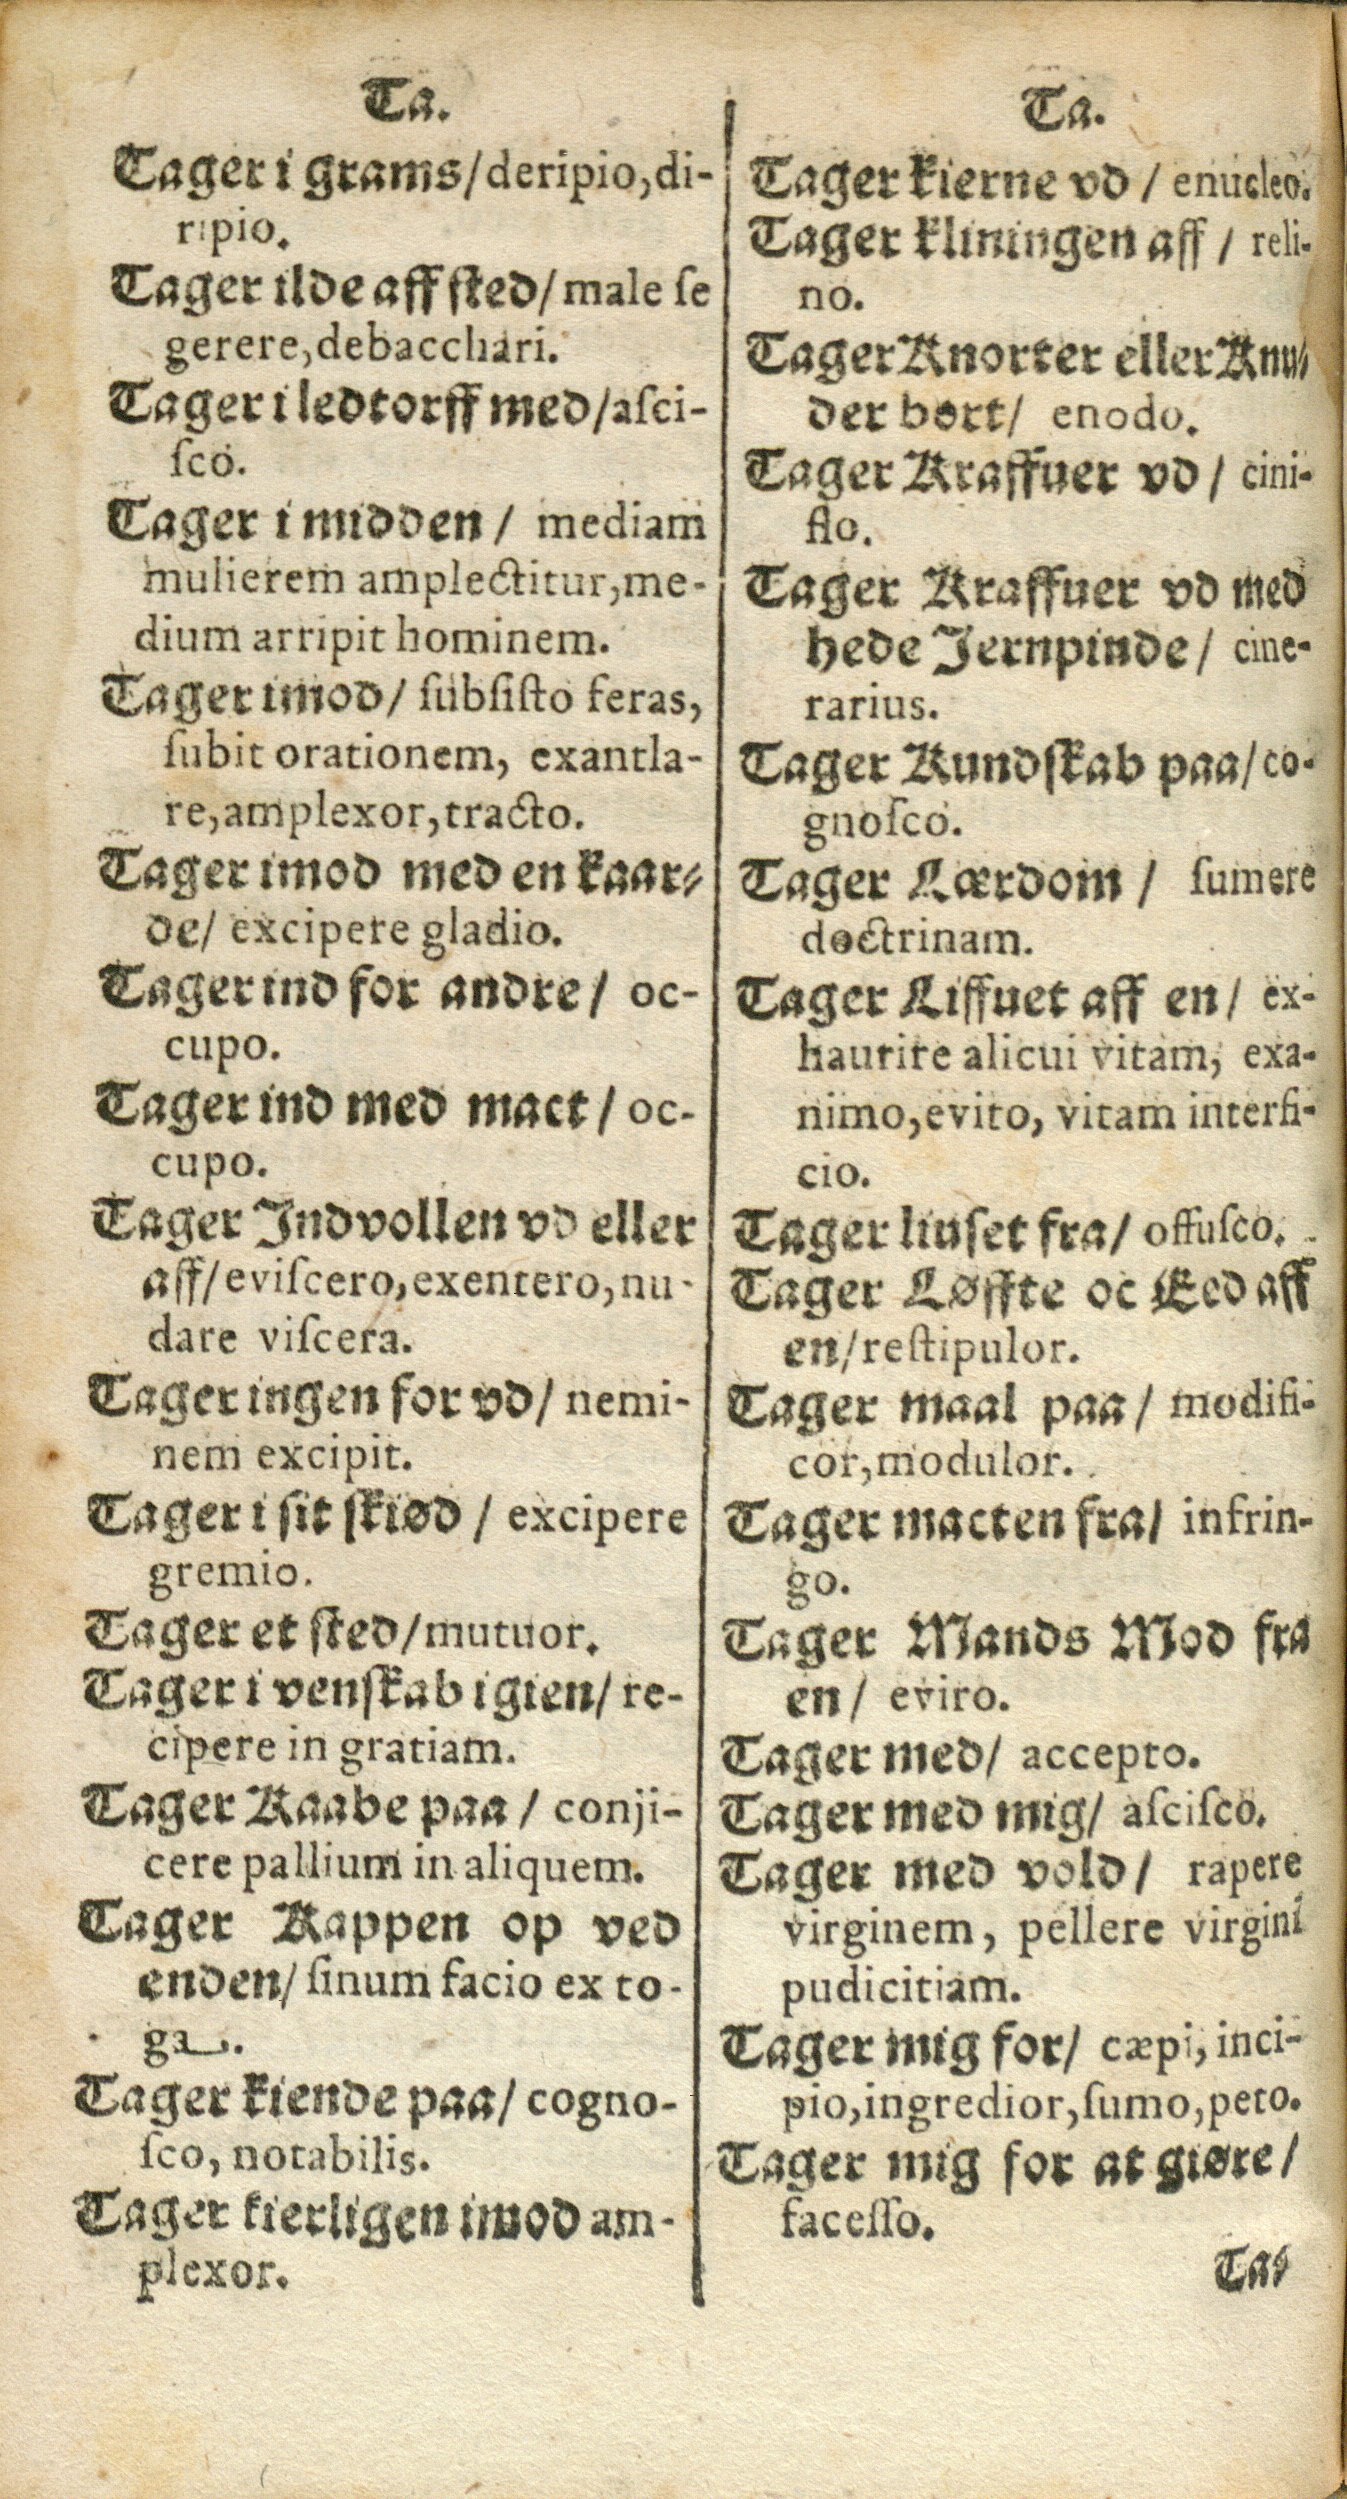 Ta.
Tager i grams/deripio,di-
ripio.
Tager ilde aff sted/male ſe
gerere,debacchari.
Tager i ledtorff med/aſci-
ſco.
Tager i midden/ mediam
mulierem amplectitur,me-
dium arripit hominem.
Tager imod/ ſubſiſto feras,
ſubit orationem, exantla-
re,amplexor,tracto.
Tager imod med en kaar-
de/ excipere gladio.
Tager ind for andre/ oc-
cupo.
Tager ind med mact/ oc-
cupo.
Tager Indvollen vd eller
aff/eviſcero,exentero,nu-
dare viſcera.
Tager ingen for vd/ nemi-
nem excipit.
Tager i ſit ſkiød/ excipere
gremio.
Tager et ſted/mutuor.
Tager i venſkab igien/ re-
cipere in gratiam.
Tager Kaabe paa/ conji-
cere pallium in aliquem.
Tager Kappen op ved
enden/ ſinum facio ex to-
ga.
Tager kiende paa/ cogno-
ſco, notabilis.
Tager kierligen imod am-
plexor.
Ta.
Tager kierne vd/ enucleo.
Tager kliningen aff/ reli-
no.
Tager Knorter eller Knu-
der bort/ enodo.
Tager Kraffuer vd/ cini-
flo.
Tager Kraffuer vd med
hede Jernpinde/ cine-
rarius.
Tager Kundſkab paa/co-
gnoſco.
Tager Lærdom/ ſumere
doctrinam.
Tager Liffuet aff en/ ex-
haurire alicui vitam, exa-
nimo,evito, vitam interfi-
cio.
Tager liuſet fra/ offuſco.
Tager Løffte oc Eed aff
en/reſtipulor.
Tager maal paa/ modifi-
cor,modulor.
Tager macten fra/ infrin-
go.
Tager Mands Mod fra
en/ eviro.
Tager med/ accepto.
Tager med mig/ aſciſco.
Tager med vold/ rapere
virginem, pellere virgini
pudicitiam.
Tager mig for/ cæpi, inci-
pio,ingredior,ſumo,peto.
Tager mig for at giøre/
faceſſo.
Ta-